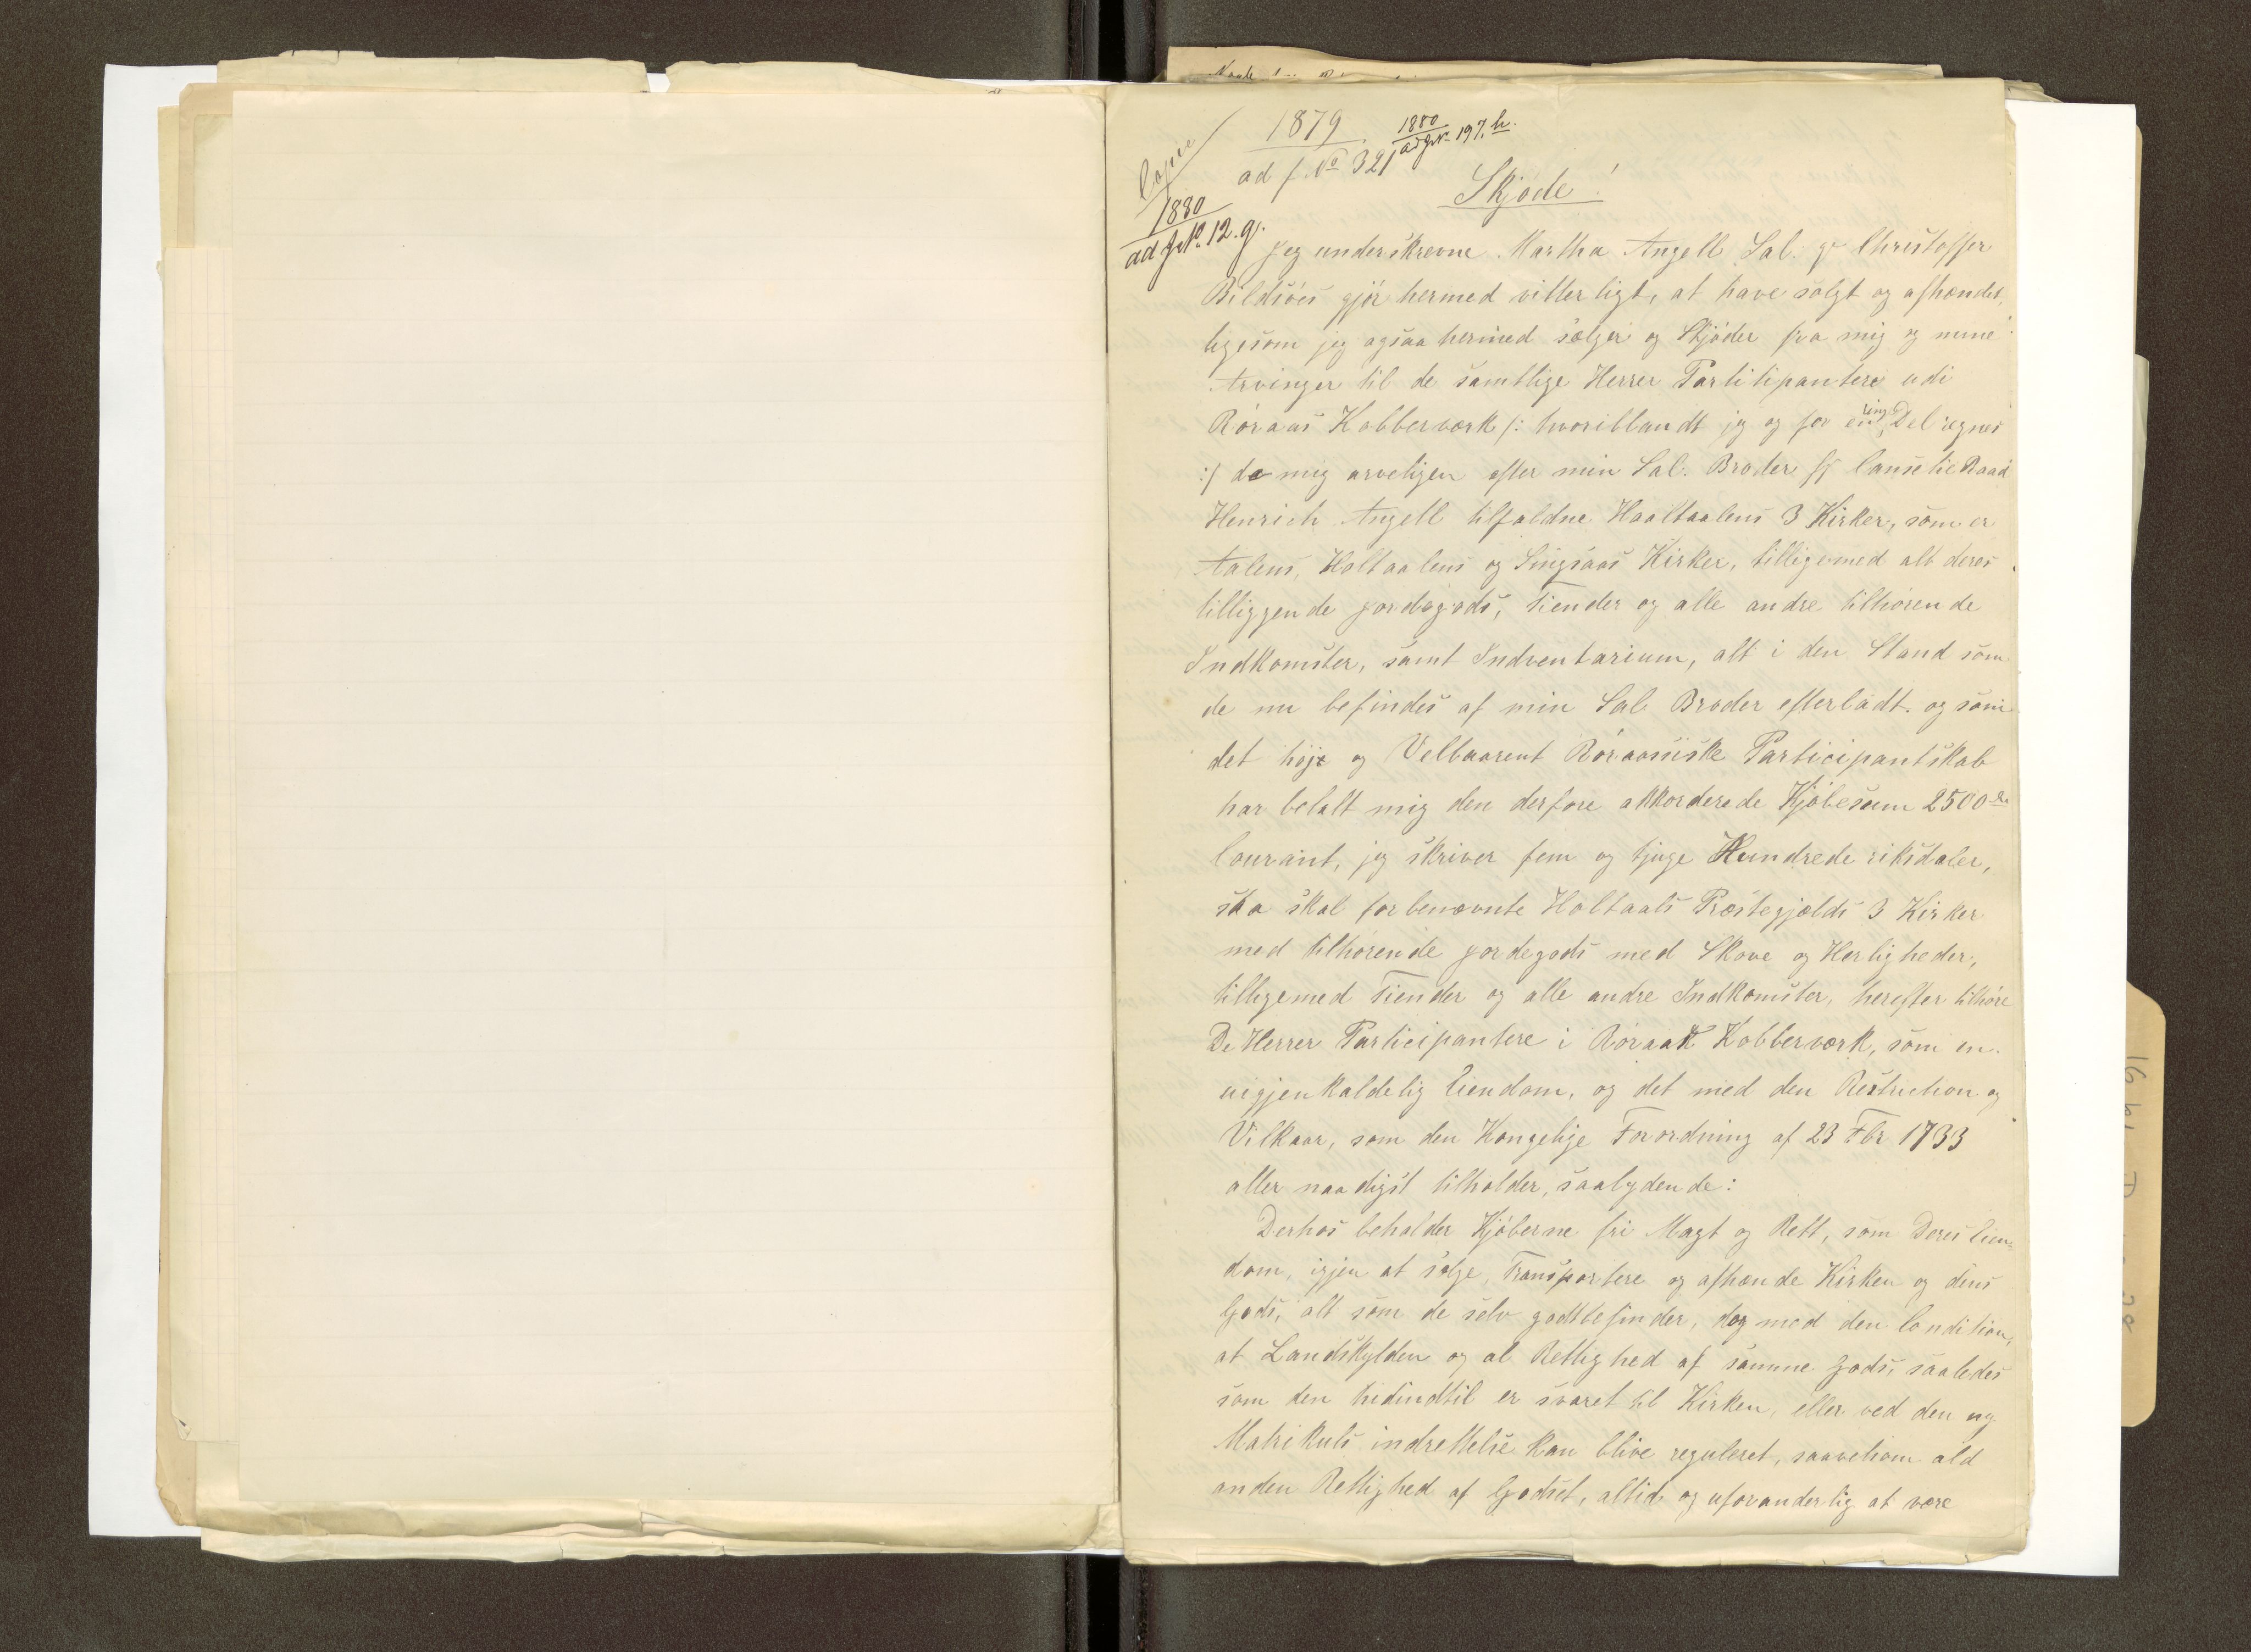 Copie
1879
ad f. No 321
1880
ad J.N. 197. h.
1880
ad J.No. 12. g.
Skjøde!
Jeg underskrevne Martha Angell Sal. Hr Christoffer
Bildsöes gjör hermed vitterligt, at have solgt og afhændet,
ligesom jeg ogsaa hermed sælger og Skjöder fra mig og mine
Arvinger til de samtlige Herrer Partitipantere udi
Röraas Kobberværk /: hvoriblandt jeg og for en ring Del egnes
:/ de mig arveligen efter min Sal. Broder Hr Cancelie Raad
Henrich Angell tilfaldne Haaltaalens 3 Kirker, som er
Aalens, Holtaalens og Singsaas Kirker, tilligemed alt deres
tilliggende Jordegods, Tiender og alle andre tilhörende
Indkomster, samt Indventarium, alt i den Stand som
de nu befindes af min Sal Broder efterladt. og som
det höje og Velbaarent Röraasiske Participantskab
har betalt mig den derfore akkorderede Kjöbesum 2500 Rd
Courant, jeg skriver fem og tjuge Hundrede riksdaler,
saa skal forbenævnte Holtaals Præstegjælds 3 Kirker
med tilhörende Jordegods med Skove og Herligheder,
tilligemed Tiender og alle andre Indkomster, herefter tilhöre
De Herrer Participantere i Röraas Kobberværk, som en
uigjenkaldelig Eiendom, og det med den Restriction og
Vilkaar, som den Kongelige Forordning af 23 Fbr 1733
aller naadigst tilholder, saalydende:
Derhos beholder Kjöberne fri Magt og Rett, som Deres Eien=
dom, igjen at sælge, Transportere og afhænde Kirken og dens
Gods, alt som de selv godtbefinder, dog med den Condition,
at Landskylden og al Rettighed af samme Gods, saaledes
som den hidindtil er svaret til Kirken, eller ved den ny
Matrikuls indrettelse kan blive reguleret, saavelsom ald
anden Rettighed af Godset, altid og uforanderlig at være